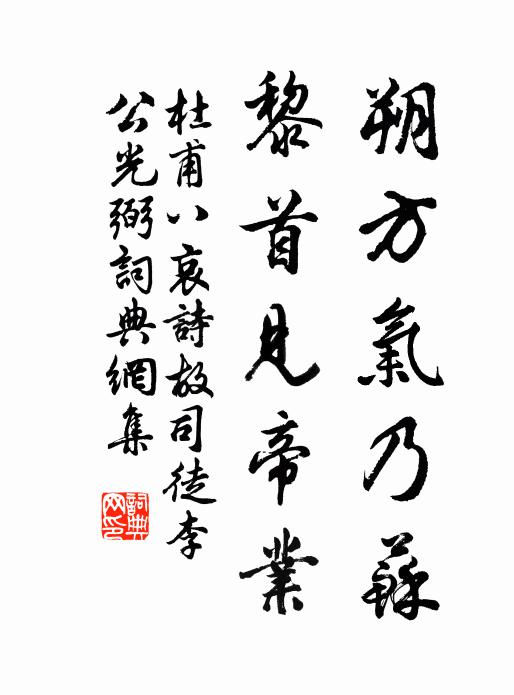 朔方氣乃蘇
黎首見帝業
杜甫八哀詩故司徒李
公光弼詞典網集
詞典網印